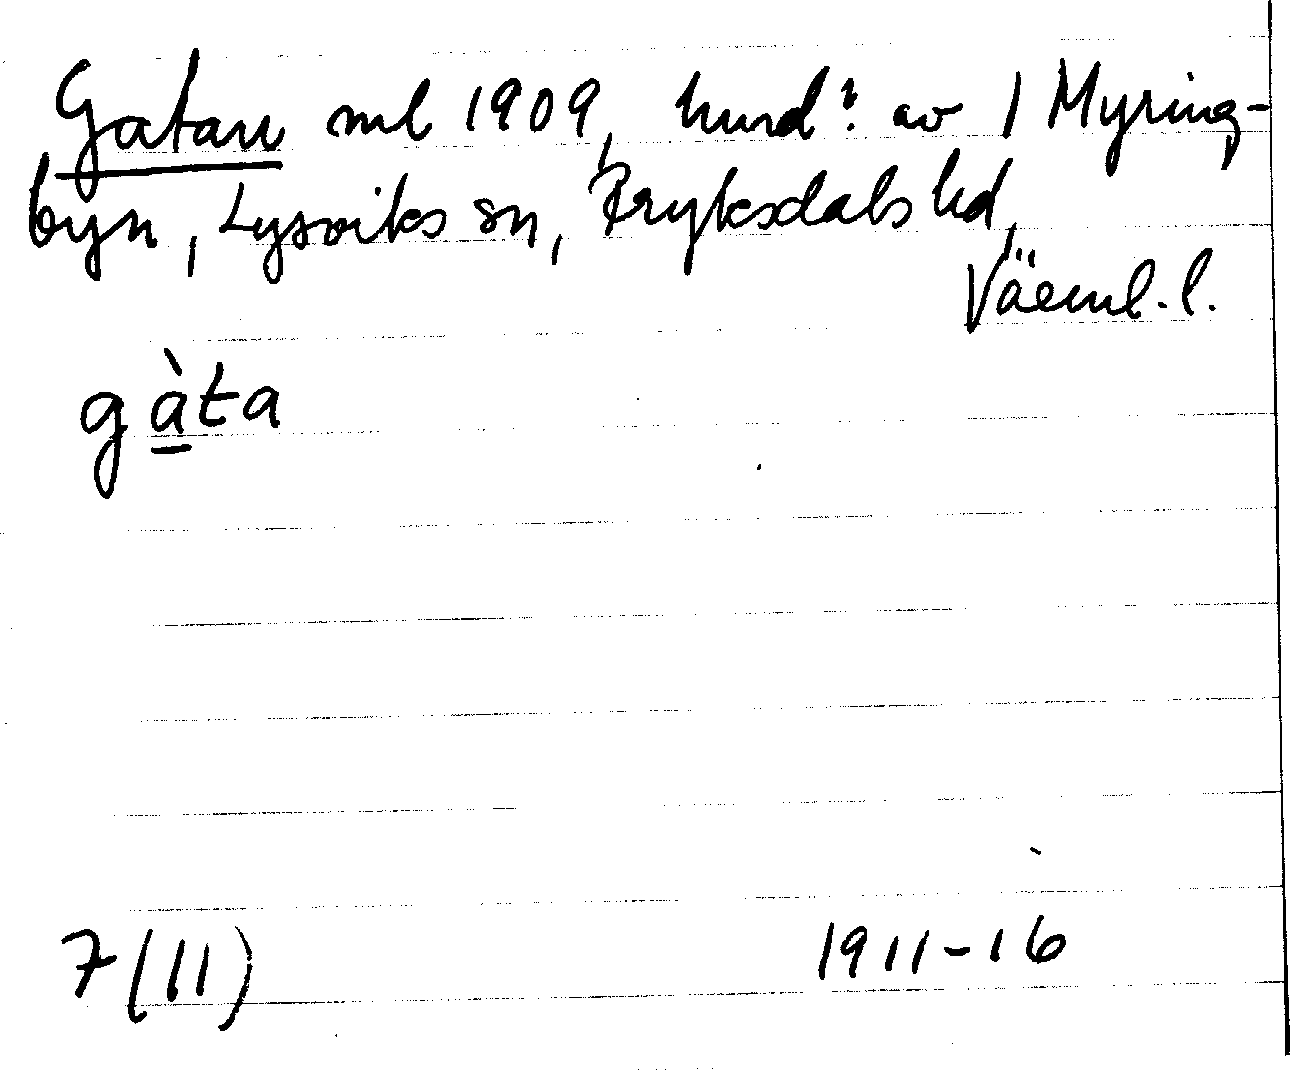 Gatan ml 1909, hmd? av 1 Myring-
byn, Lysviks sn, Fryksdals hd,
Värml. l.
gàta
7(11)
1911-16